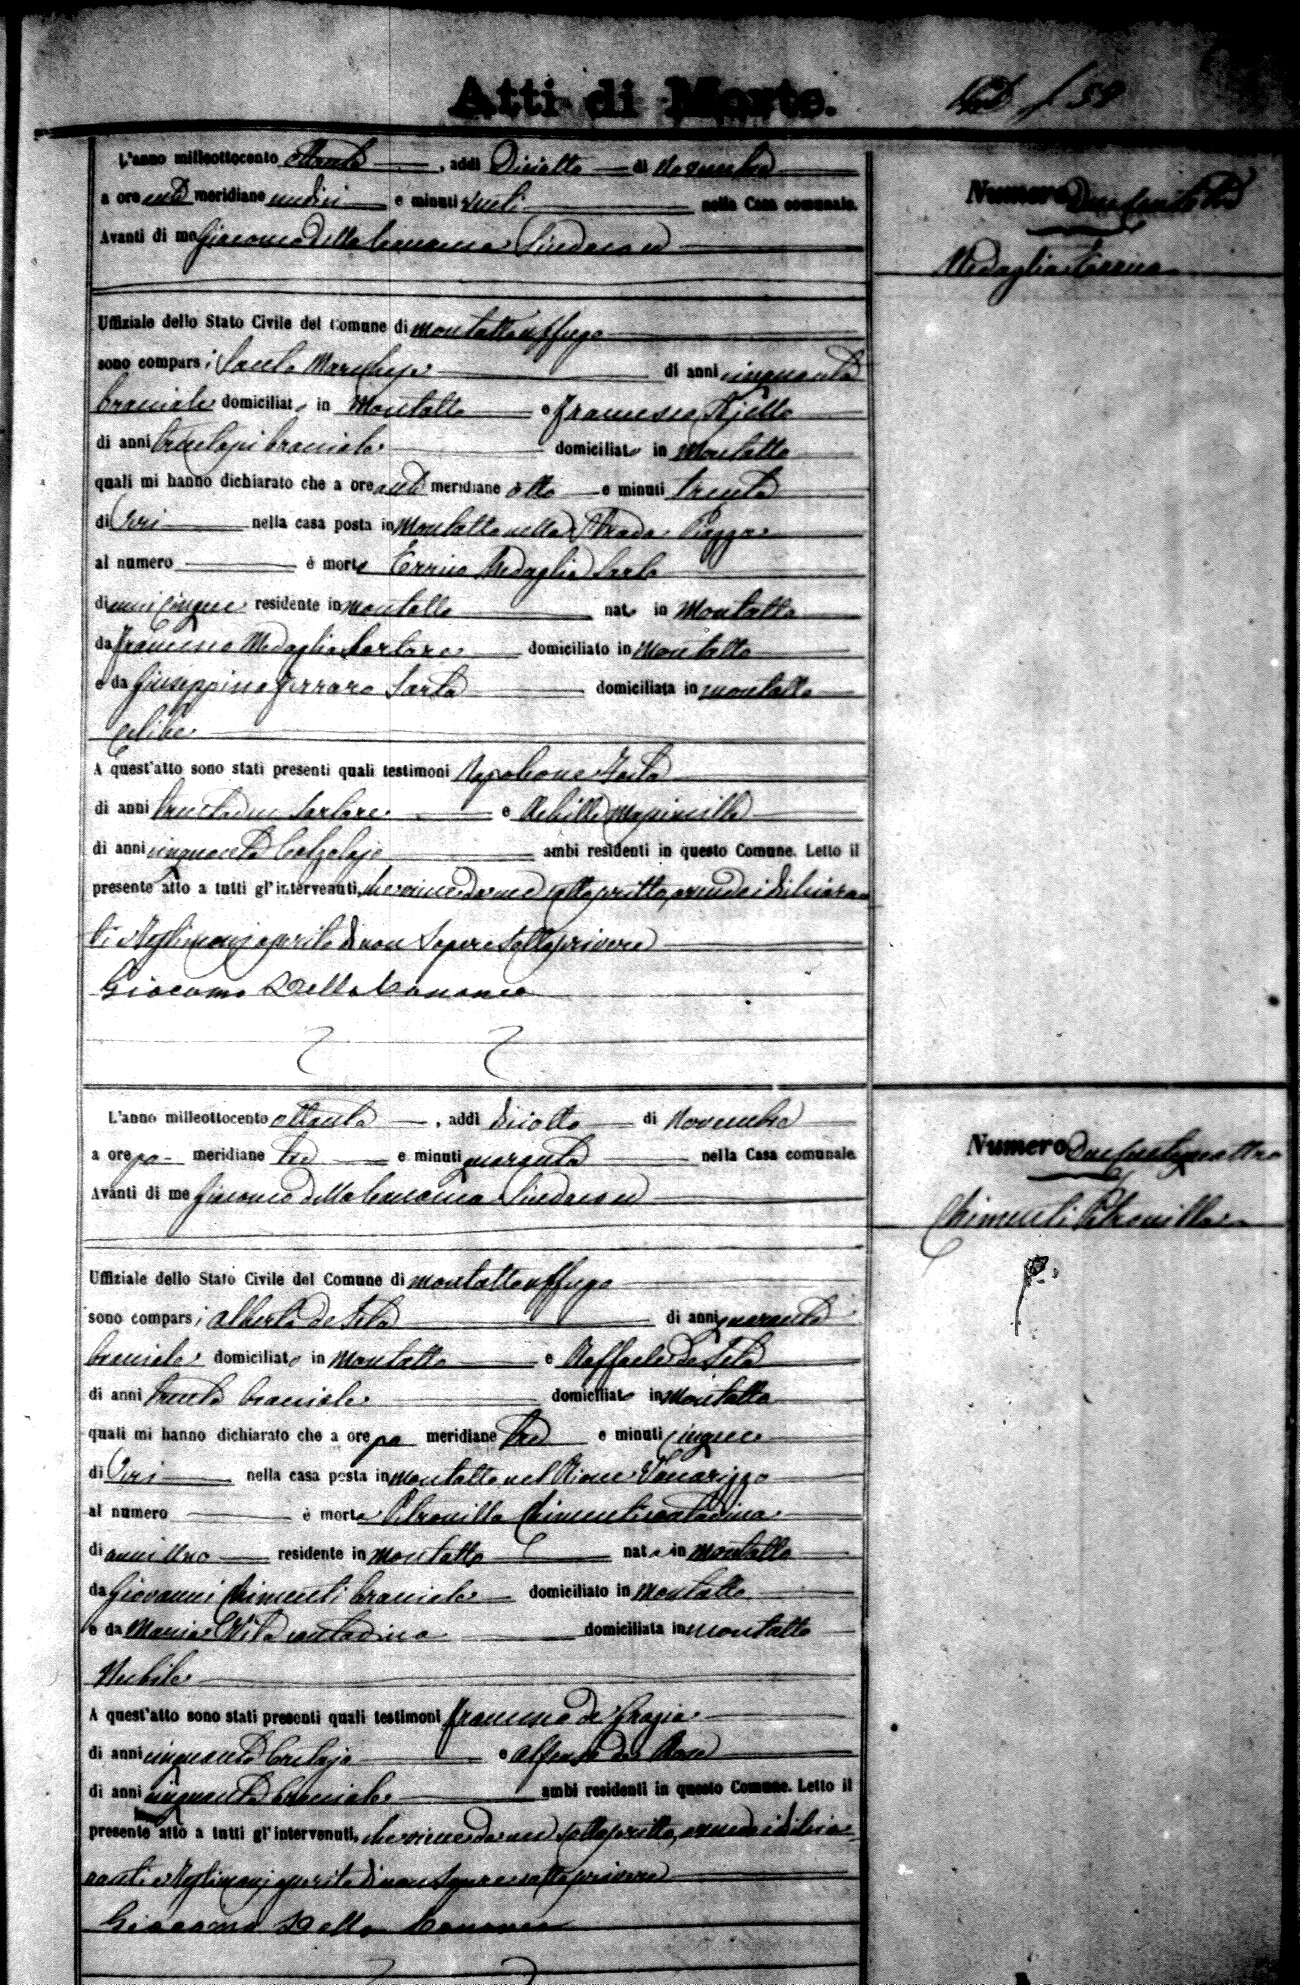 Atti di Morte.
59
L'anno milleottocento ottanta, addì Diciotto di Novembre
a ore anti meridiane undici e minuti venti nella Casa comunale.
Avanti di me Giacomo Della Cananea Sindaco ed
Numero Duecentotre
Medaglia Errico
Uffiziale dello Stato Civile del Comune di Montaltouffugo
sono comparsi Santo Marchese di anni cinquanta
bracciale domiciliato in Montalto e Francesco Ajello
di anni trentasei bracciale domiciliato in Montalto
quali mi hanno dichiarato che a ore anti meridiane otto e minuti trenta
di Ieri nella casa posta in Montalto nella Strada Piazza
al numero è morto Errico Medaglia Sarto
di anni cinque residente in Montalto nato in Montalto
da Francesco Medaglia Sartore domiciliato in Montalto
e da Giuseppina Ferraro Sarta domiciliata in Montalto
Celibe
A quest'atto sono stati presenti quali testimoni Napoleone
di anni trentadue Sartore e Achille
di anni cinquanta Calzolajo ambi residenti in questo Comune. Letto il
presente atto a tutti gl'intervenuti, che viene da me sottoscritto, avendo i dichiaran
ti e testimonj asserito di non sapere sottoscrivere
Giacomo Della Cananea
L'anno milleottocento ottanta, addì diciotto di Novembre
a ore po- meridiane tre e minuti quaranta nella Casa comunale.
Avanti di me Giacomo della Cananea Sindaco ed
Numero Duecentoquattro
Chimenti Petronilla
Uffiziale dello Stato Civile del Comune di Montaltouffugo
sono comparsi Alberto de Seta di anni quaranta
bracciale domiciliato in Montalto e Raffaele de Seta
di anni trenta bracciale domiciliato in Montalto
quali mi hanno dichiarato che a ore po meridiane tre e minuti cinque
di Ieri nella casa posta in Montalto nel Rione Vaccarizzo
al numero è morta Petronilla Chimenti contadina
di anni Uno residente in Montalto nata in Montalto
da Giovanni Chimenti bracciale domiciliato in Montalto
e da Maria Vita contadina domiciliata in Montalto
Nubile
A quest'atto sono stati presenti quali testimoni Francesco de Grazia
di anni cinquanta e Alfonso de Rose
di anni cinquanta bracciale ambi residenti in questo Comune. Letto il
presente atto a tutti gl'intervenuti, che viene da me sottoscritto, avendo i dichia-
ranti e testimonj asserito di non sapere sottoscrivere
Giacomo Della Cananea